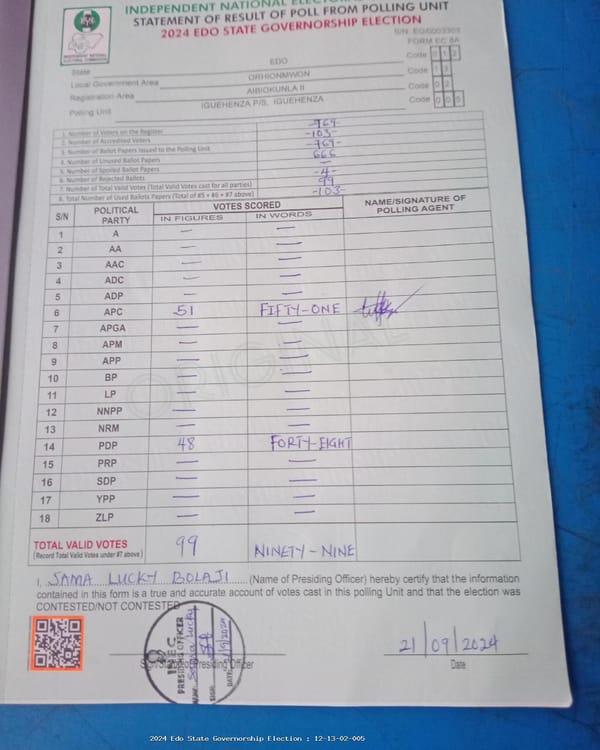 INDEPENDENT NATIONAL ELECTORAL
STATEMENT OF RESULT OF POLL FROM POLLING UNIT
2024 EDO STATE GOVERNORSHIP ELECTION
FORM EC 8A
State EDO Code 012
Local Government Area ORHIONMWON Code 13
Registration Area AIBIOKUNLA II Code 02
Polling Unit IGUEHENZA P/S, IGUEHENZA Code 005
1. Number of Voters on the Register -769-
2. Number of Accredited Voters -103-
3. Number of Ballot Papers Issued to the Polling Unit -769-
4. Number of Unused Ballot Papers 666
5. Number of Spoiled Ballot Papers —
6. Number of Rejected Ballots -4-
7. Number of Total Valid Votes (Total Valid Votes cast for all parties) 99
8. Total Number of Used Ballots Papers (Total of #5 + #6 + #7 above) -103-
S/N POLITICAL PARTY VOTES SCORED NAME/SIGNATURE OF POLLING AGENT
IN FIGURES IN WORDS
1 A — —
2 AA — —
3 AAC — —
4 ADC — —
5 ADP — —
6 APC 51 FIFTY-ONE
7 APGA — —
8 APM — —
9 APP — —
10 BP — —
11 LP — —
12 NNPP — —
13 NRM — —
14 PDP 48 FORTY-EIGHT
15 PRP — —
16 SDP — —
17 YPP — —
18 ZLP — —
ORIGINAL
TOTAL VALID VOTES 99 NINETY-NINE
(Record Total Valid Votes under #7 above)
I, SAMA LUCKY BOLAJI (Name of Presiding Officer) hereby certify that the information
contained in this form is a true and accurate account of votes cast in this polling Unit and that the election was
CONTESTED/NOT CONTESTED
INEC
PRESIDING OFFICER
Sama Lucky
SIGN
DATE 21/9/2024
21/09/2024
Presiding Officer Date
2024 Edo State Governorship Election : 12-13-02-005